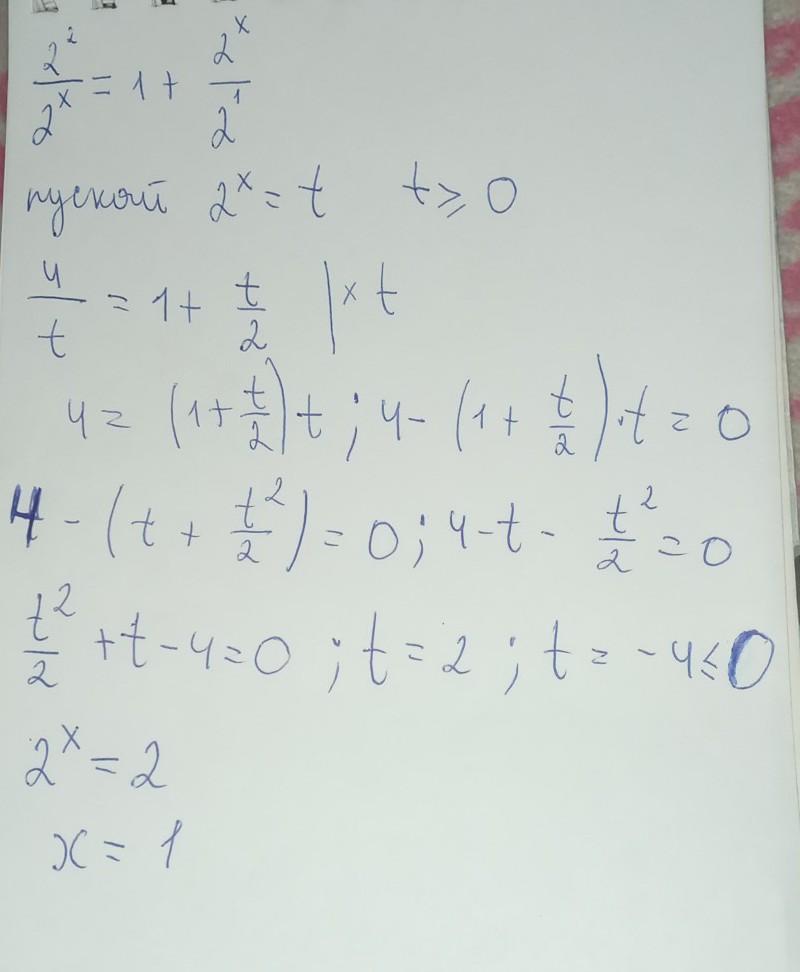 2²/2ˣ = 1 + 2ˣ/2¹
пускай 2ˣ = t t ⩾ 0
4/t = 1 + t/2 | × t
4 = (1 + t/2) t ; 4 - (1 + t/2) · t = 0
4 - (t + t²/2) = 0 ; 4 - t - t²/2 = 0
t²/2 + t - 4 = 0 ; t = 2 ; t = -4 ⩽ 0
2ˣ = 2
x = 1